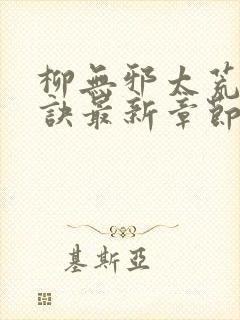 柳無邪太荒
訣最新章節
基斯亞